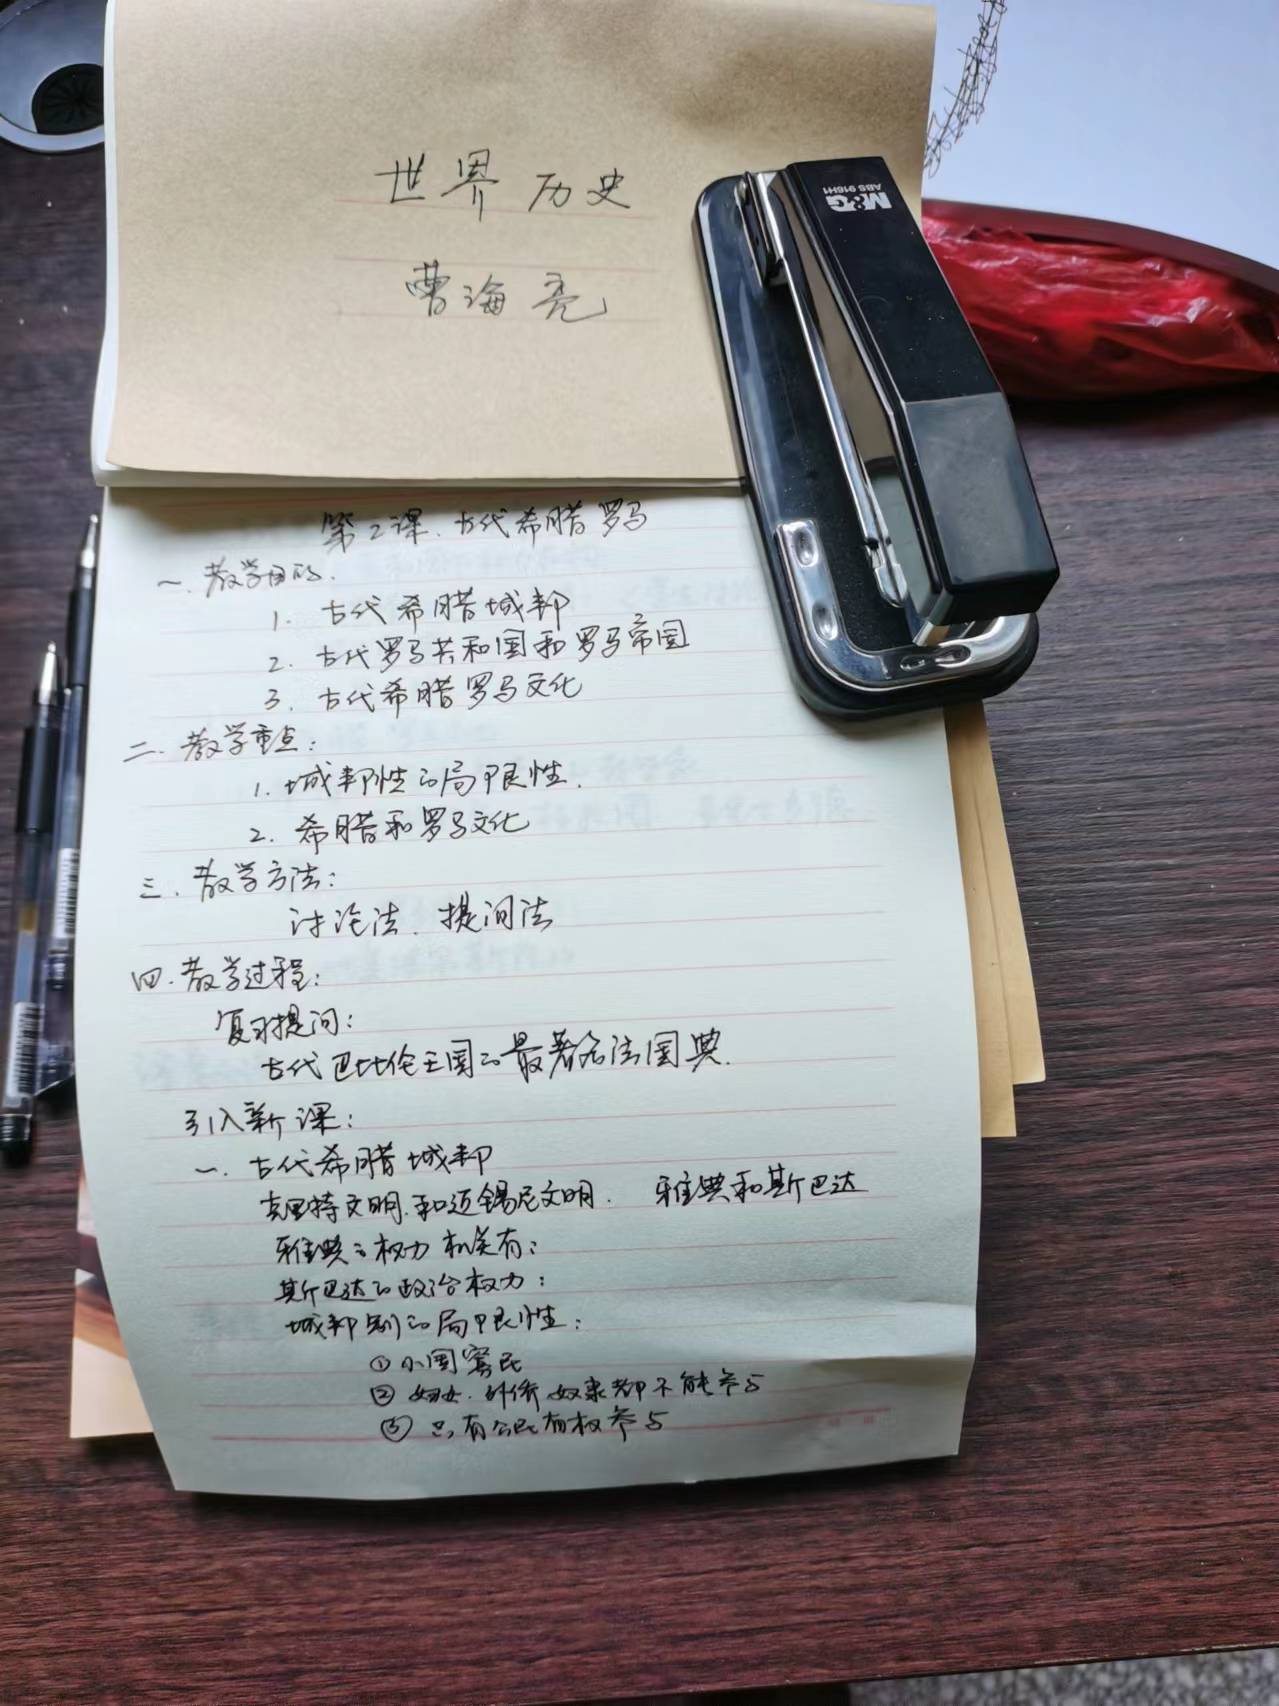 世界历史
曹海亮
M&G
ABS 916H1
第2课、古代希腊罗马
一、教学目的.
1. 古代希腊城邦
2. 古代罗马共和国和罗马帝国
3. 古代希腊罗马文化
二、教学重点:
1. 城邦性的局限性.
2. 希腊和罗马文化
三、教学方法:
讨论法、提问法
四.教学过程:
复习提问:
古代巴比伦王国的最著名法国典.
引入新课:
一、古代希腊城邦
克里特文明.和迈锡尼文明. 雅典和斯巴达
雅典的权力机关有:
斯巴达的政治权力:
城邦制的局限性:
①小国寡民
②妇女.外侨奴隶都不能参与
③只有公民有权参与